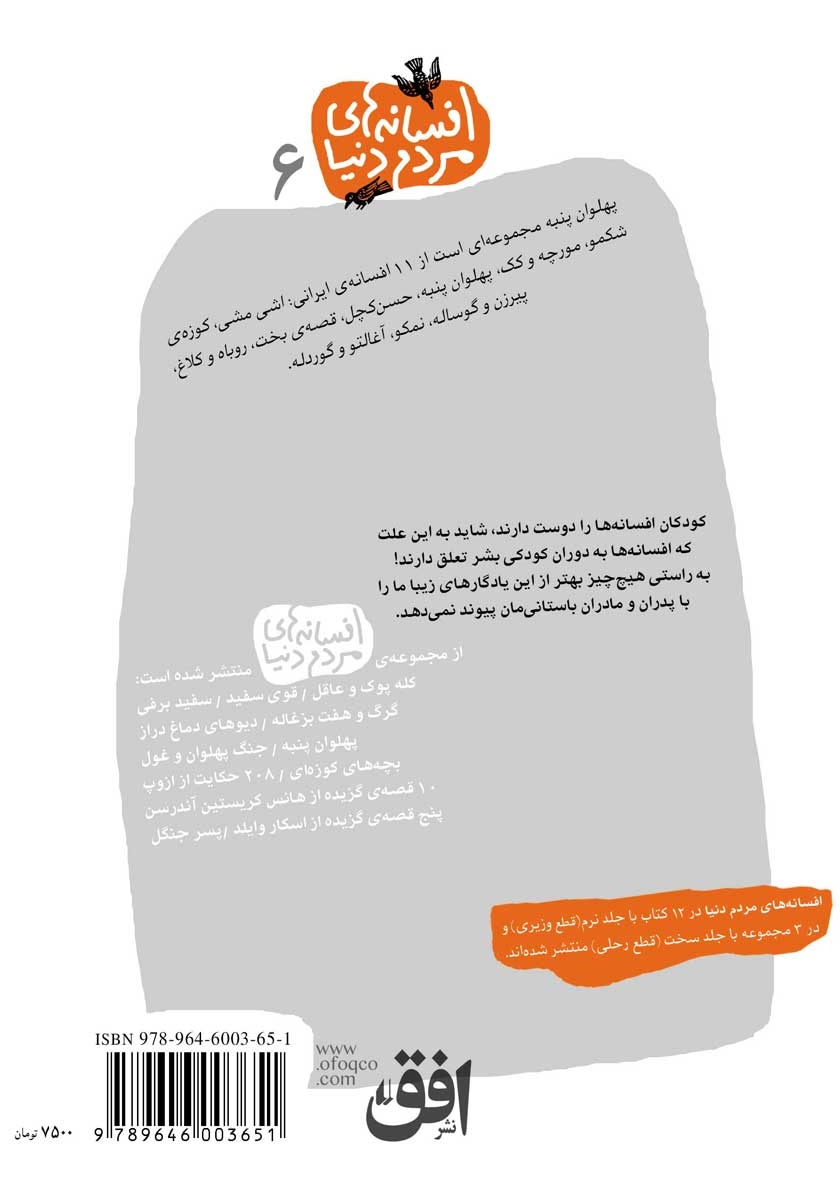 افسانه‌های
مردم دنیا
۶
پهلوان پنبه مجموعه‌ای است از ۱۱ افسانه‌ی ایرانی: اشی مشی، کوزه‌ی
شکمو، مورچه و کک، پهلوان پنبه، حسن‌کچل، قصه‌ی بخت، روباه و کلاغ،
پیرزن و گوساله، نمکو، آغالتو و گوردله.
کودکان افسانه‌ها را دوست دارند، شاید به این علت
که افسانه‌ها به دوران کودکی بشر تعلق دارند!
به راستی هیچ‌چیز بهتر از این یادگارهای زیبا ما را
با پدران و مادران باستانی‌مان پیوند نمی‌دهد.
از مجموعه‌ی افسانه‌های مردم دنیا منتشر شده است:
کله پوک و عاقل / قوی سفید / سفید برفی
گرگ و هفت بزغاله / دیوهای دماغ دراز
پهلوان پنبه / جنگ پهلوان و غول
بچه‌های کوزه‌ای / ۲۰۸ حکایت از ازوپ
۱۰ قصه‌ی گزیده از هانس کریستین آندرسن
پنج قصه‌ی گزیده از اسکار وایلد / پسر جنگل
افسانه‌های مردم دنیا در ۱۲ کتاب با جلد نرم(قطع وزیری) و
در ۳ مجموعه با جلد سخت (قطع رحلی) منتشر شده‌اند.
ISBN 978-964-6003-65-1
9 789646 003651
۷۵۰۰ تومان
www
.ofoqco
.com
نشر افق